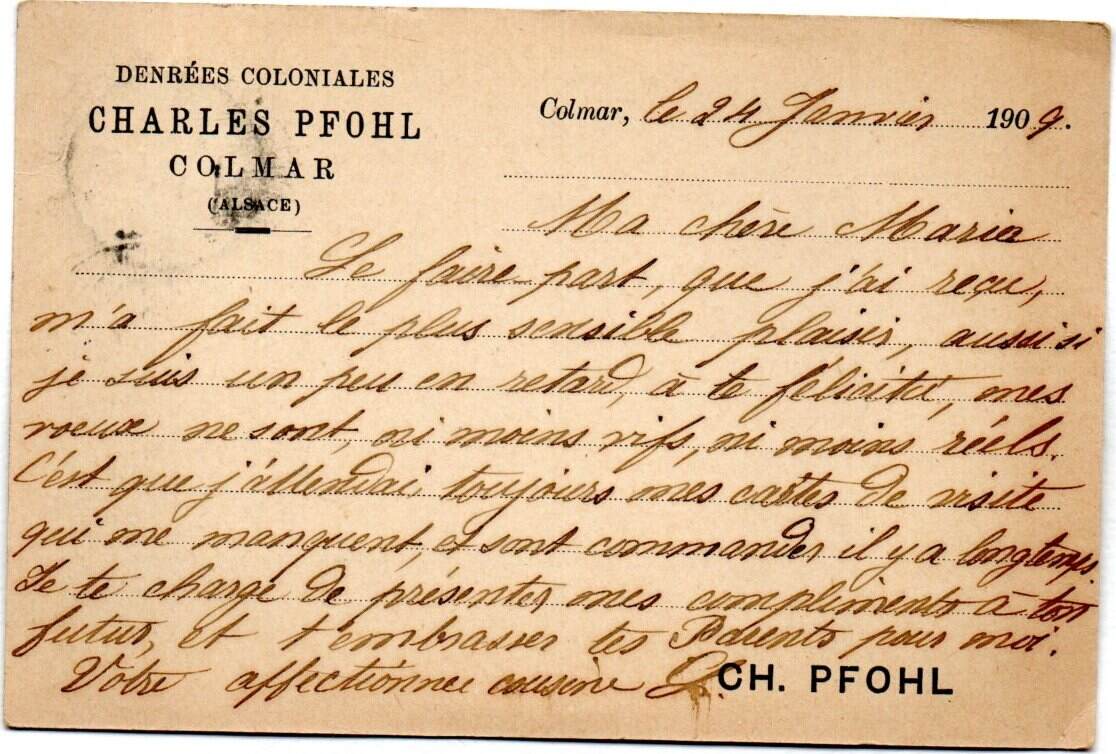 DENRÉES COLONIALES
CHARLES PFOHL
COLMAR
(ALSACE)
Colmar, le 24 Janvier 1909.
Ma chère Maria
Le faire part, que j'ai reçu,
m'a fait le plus sensible plaisir, aussi si
je suis un peu en retard, à te félicité, mes
voeux ne sont, ni moins vifs, ni moins réels.
C'est que j'attendai, toujours mes cartes de visite
qui me manquent, et sont commander, il y a longtemps.
Je te charge de présenter mes compliments à ton
futur, et t'embrasser tes Parents pour moi.
Votre affectionnée cousine
CH. PFOHL